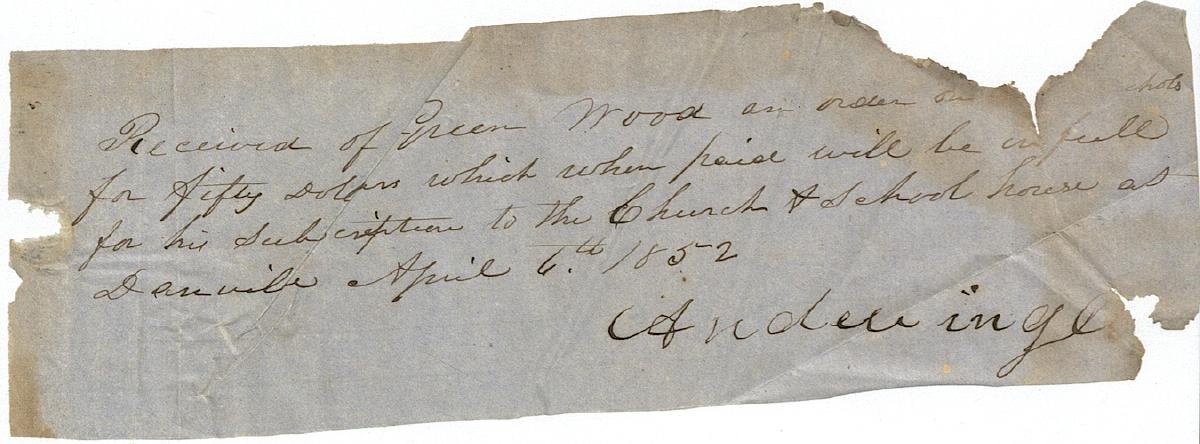 Received of Green Wood an order on
for fifty Dolars which when paid will be in full
for his Subscription to the Church & School house at
Danvile April 6.th 1852
Andew ingl